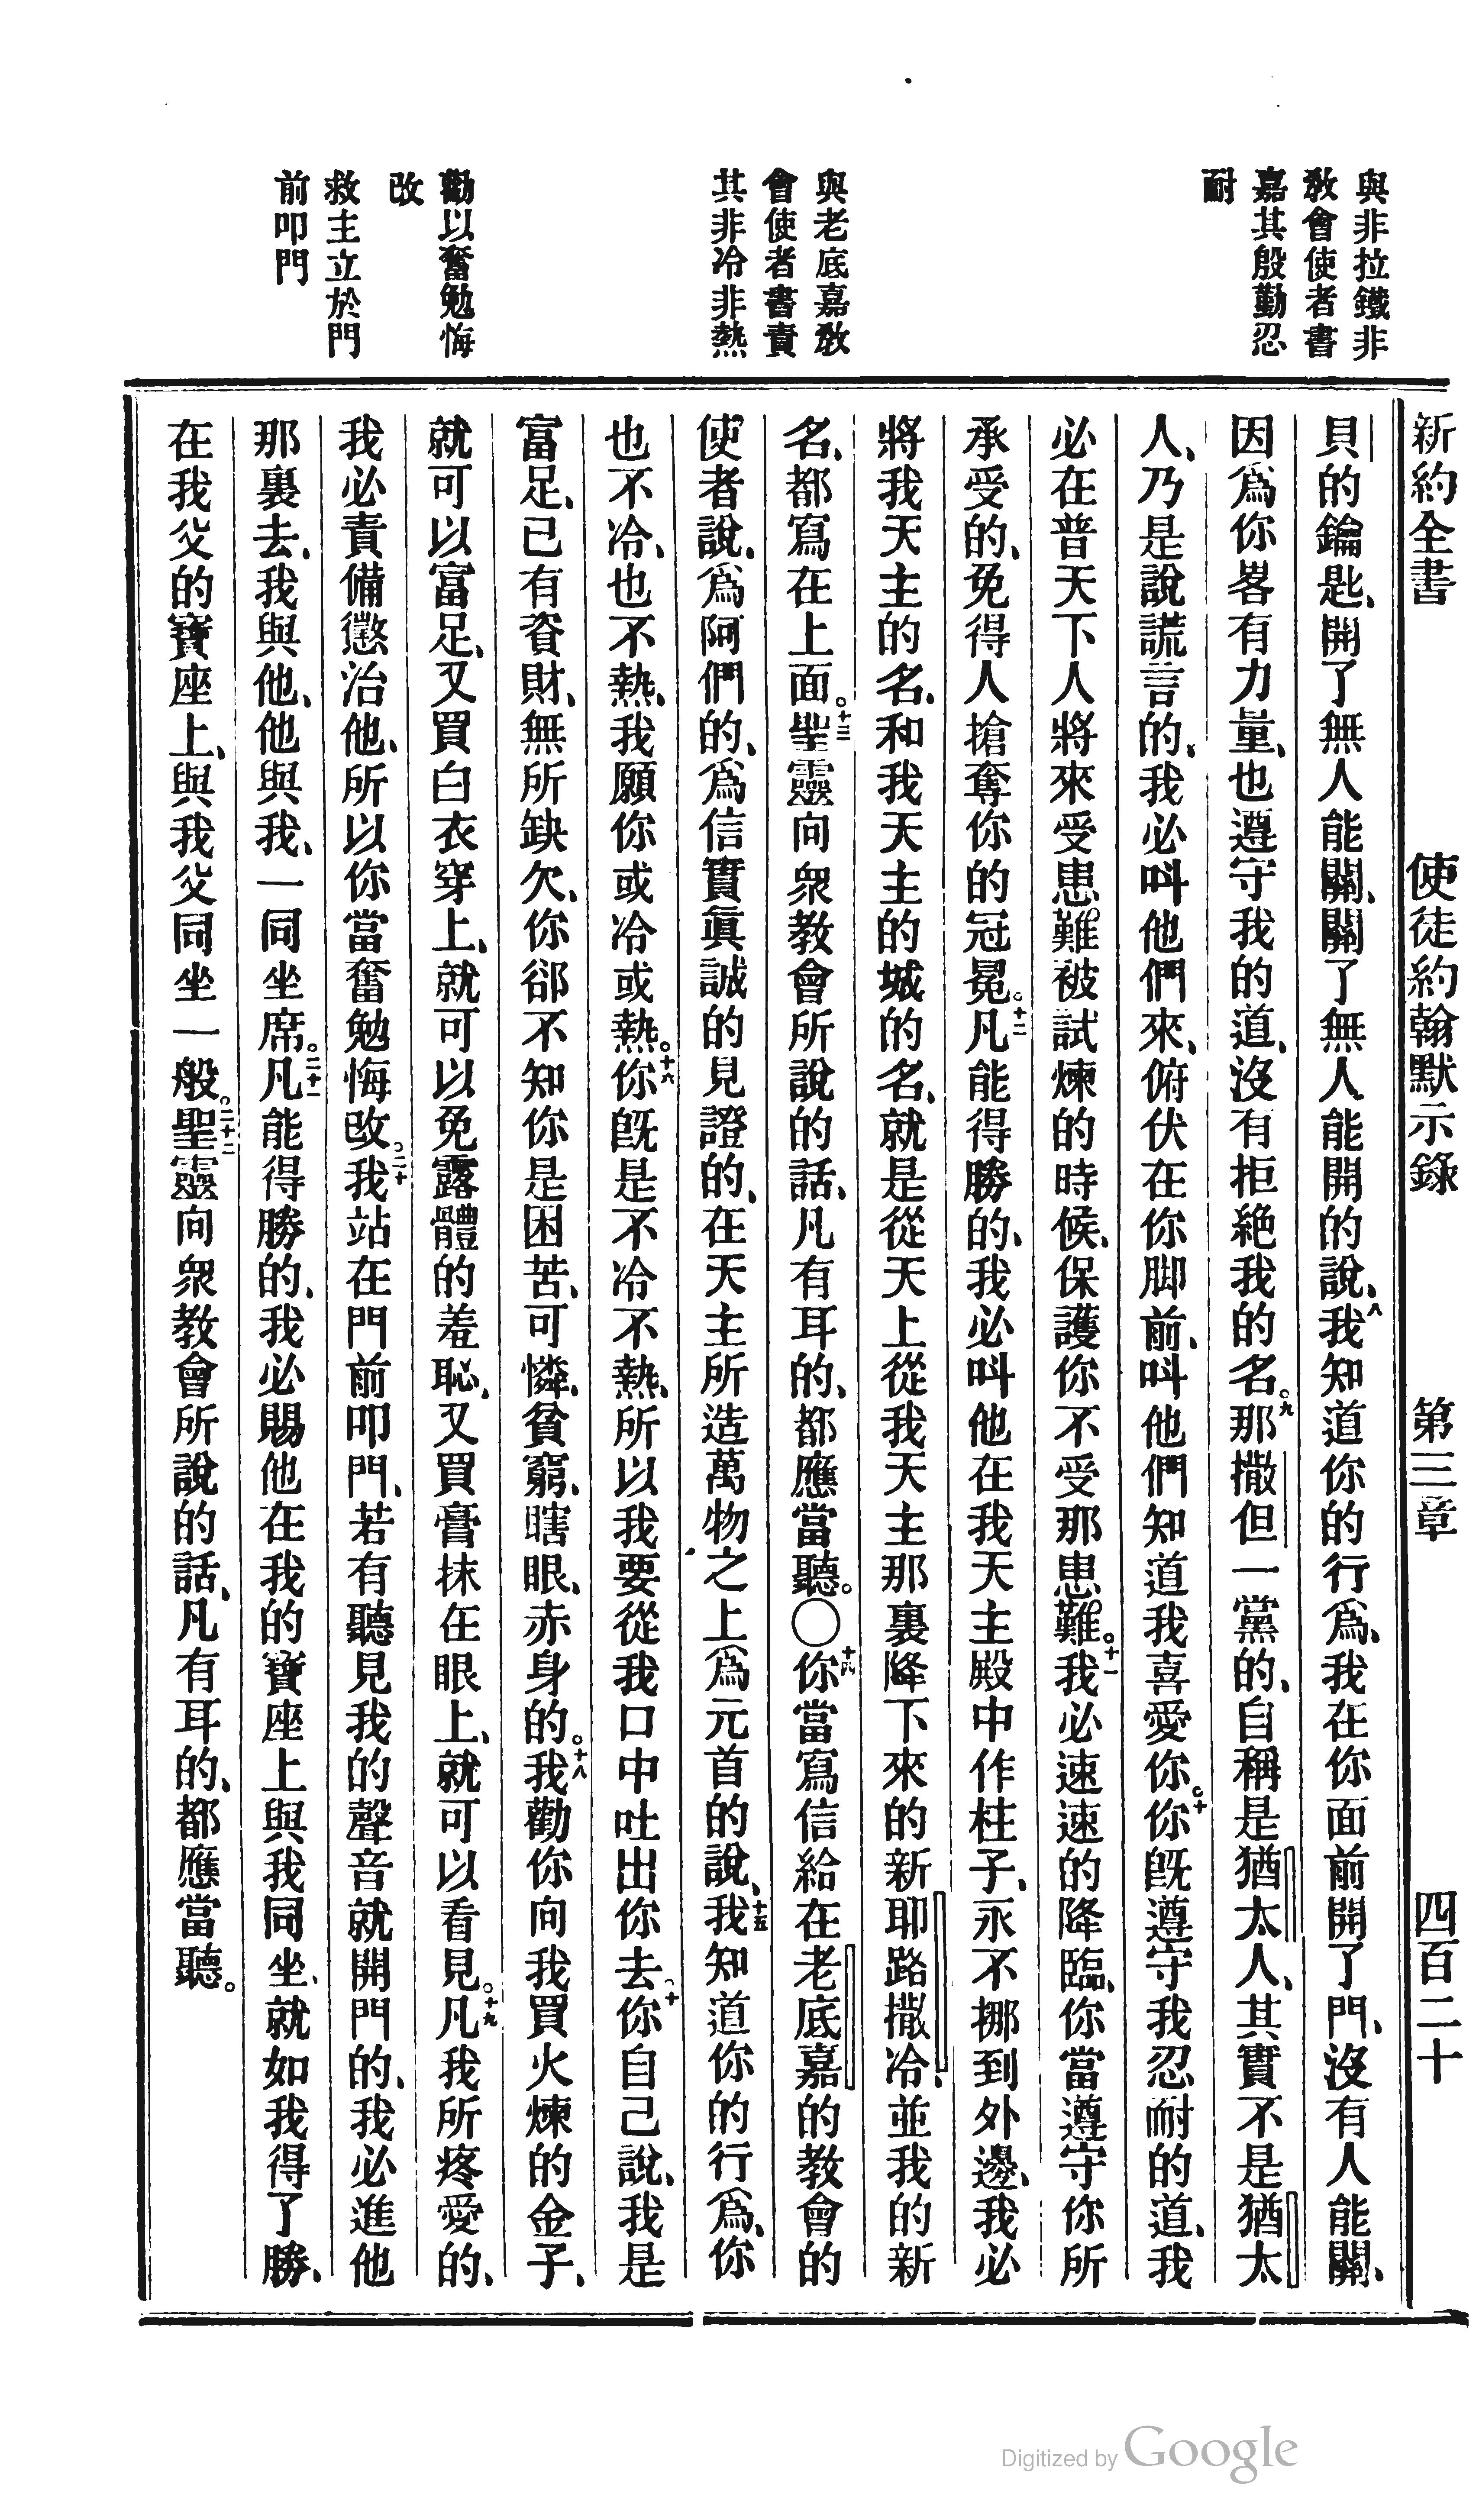 新約全書 使徒約翰默示錄 第三章 四百二十
與非拉鐵非
教會使者書
嘉其殷勤忍
耐
與老底嘉教
會使者書責
其非冷非熱
勸以奮勉悔
改
救主立於門
前叩門
貝的鑰匙、開了無人能關、關了無人能開的說、八我知道你的行爲、我在你面前開了門、沒有人能關、
因爲你畧有力量、也遵守我的道、沒有拒絕我的名。九那撒但一黨的、自稱是猶太人、其實不是猶太
人、乃是說謊言的、我必叫他們來、俯伏在你脚前、叫他們知道我喜愛你。十你旣遵守我忍耐的道、我
必在普天下人將來受患難被試煉的時候、保護你不受那患難。十一我必速速的降臨、你當遵守你所
承受的、免得人搶奪你的冠冕。十二凡能得勝的、我必叫他在我天主殿中作柱子、永不挪到外邊、我必
將我天主的名、和我天主的城的名、就是從天上從我天主那裏降下來的新耶路撒冷、並我的新
名、都寫在上面。十三聖靈向衆教會所說的話、凡有耳的、都應當聽。〇十四你當寫信給在老底嘉的教會的
使者說、爲阿們的、爲信實眞誠的見證的、在天主所造萬物之上爲元首的說、十五我知道你的行爲、你
也不冷、也不熱、我願你或冷或熱。十六你旣是不冷不熱、所以我要從我口中吐出你去。十你自己說、我是
富足、已有資財、無所缺欠、你卻不知你是困苦、可憐、貧窮、瞎眼、赤身的。十八我勸你向我買火煉的金子、
就可以富足、又買白衣穿上、就可以免露體的羞恥、又買膏抹在眼上、就可以看見。十九凡我所疼愛的、
我必責備懲治他、所以你當奮勉悔改。二十我站在門前叩門、若有聽見我的聲音就開門的、我必進他
那裏去、我與他、他與我、一同坐席。二十一凡能得勝的、我必賜他在我的寶座上與我同坐、就如我得了勝、
在我父的寶座上、與我父同坐一般。二十二聖靈向衆教會所說的話、凡有耳的、都應當聽。
Digitized by Google